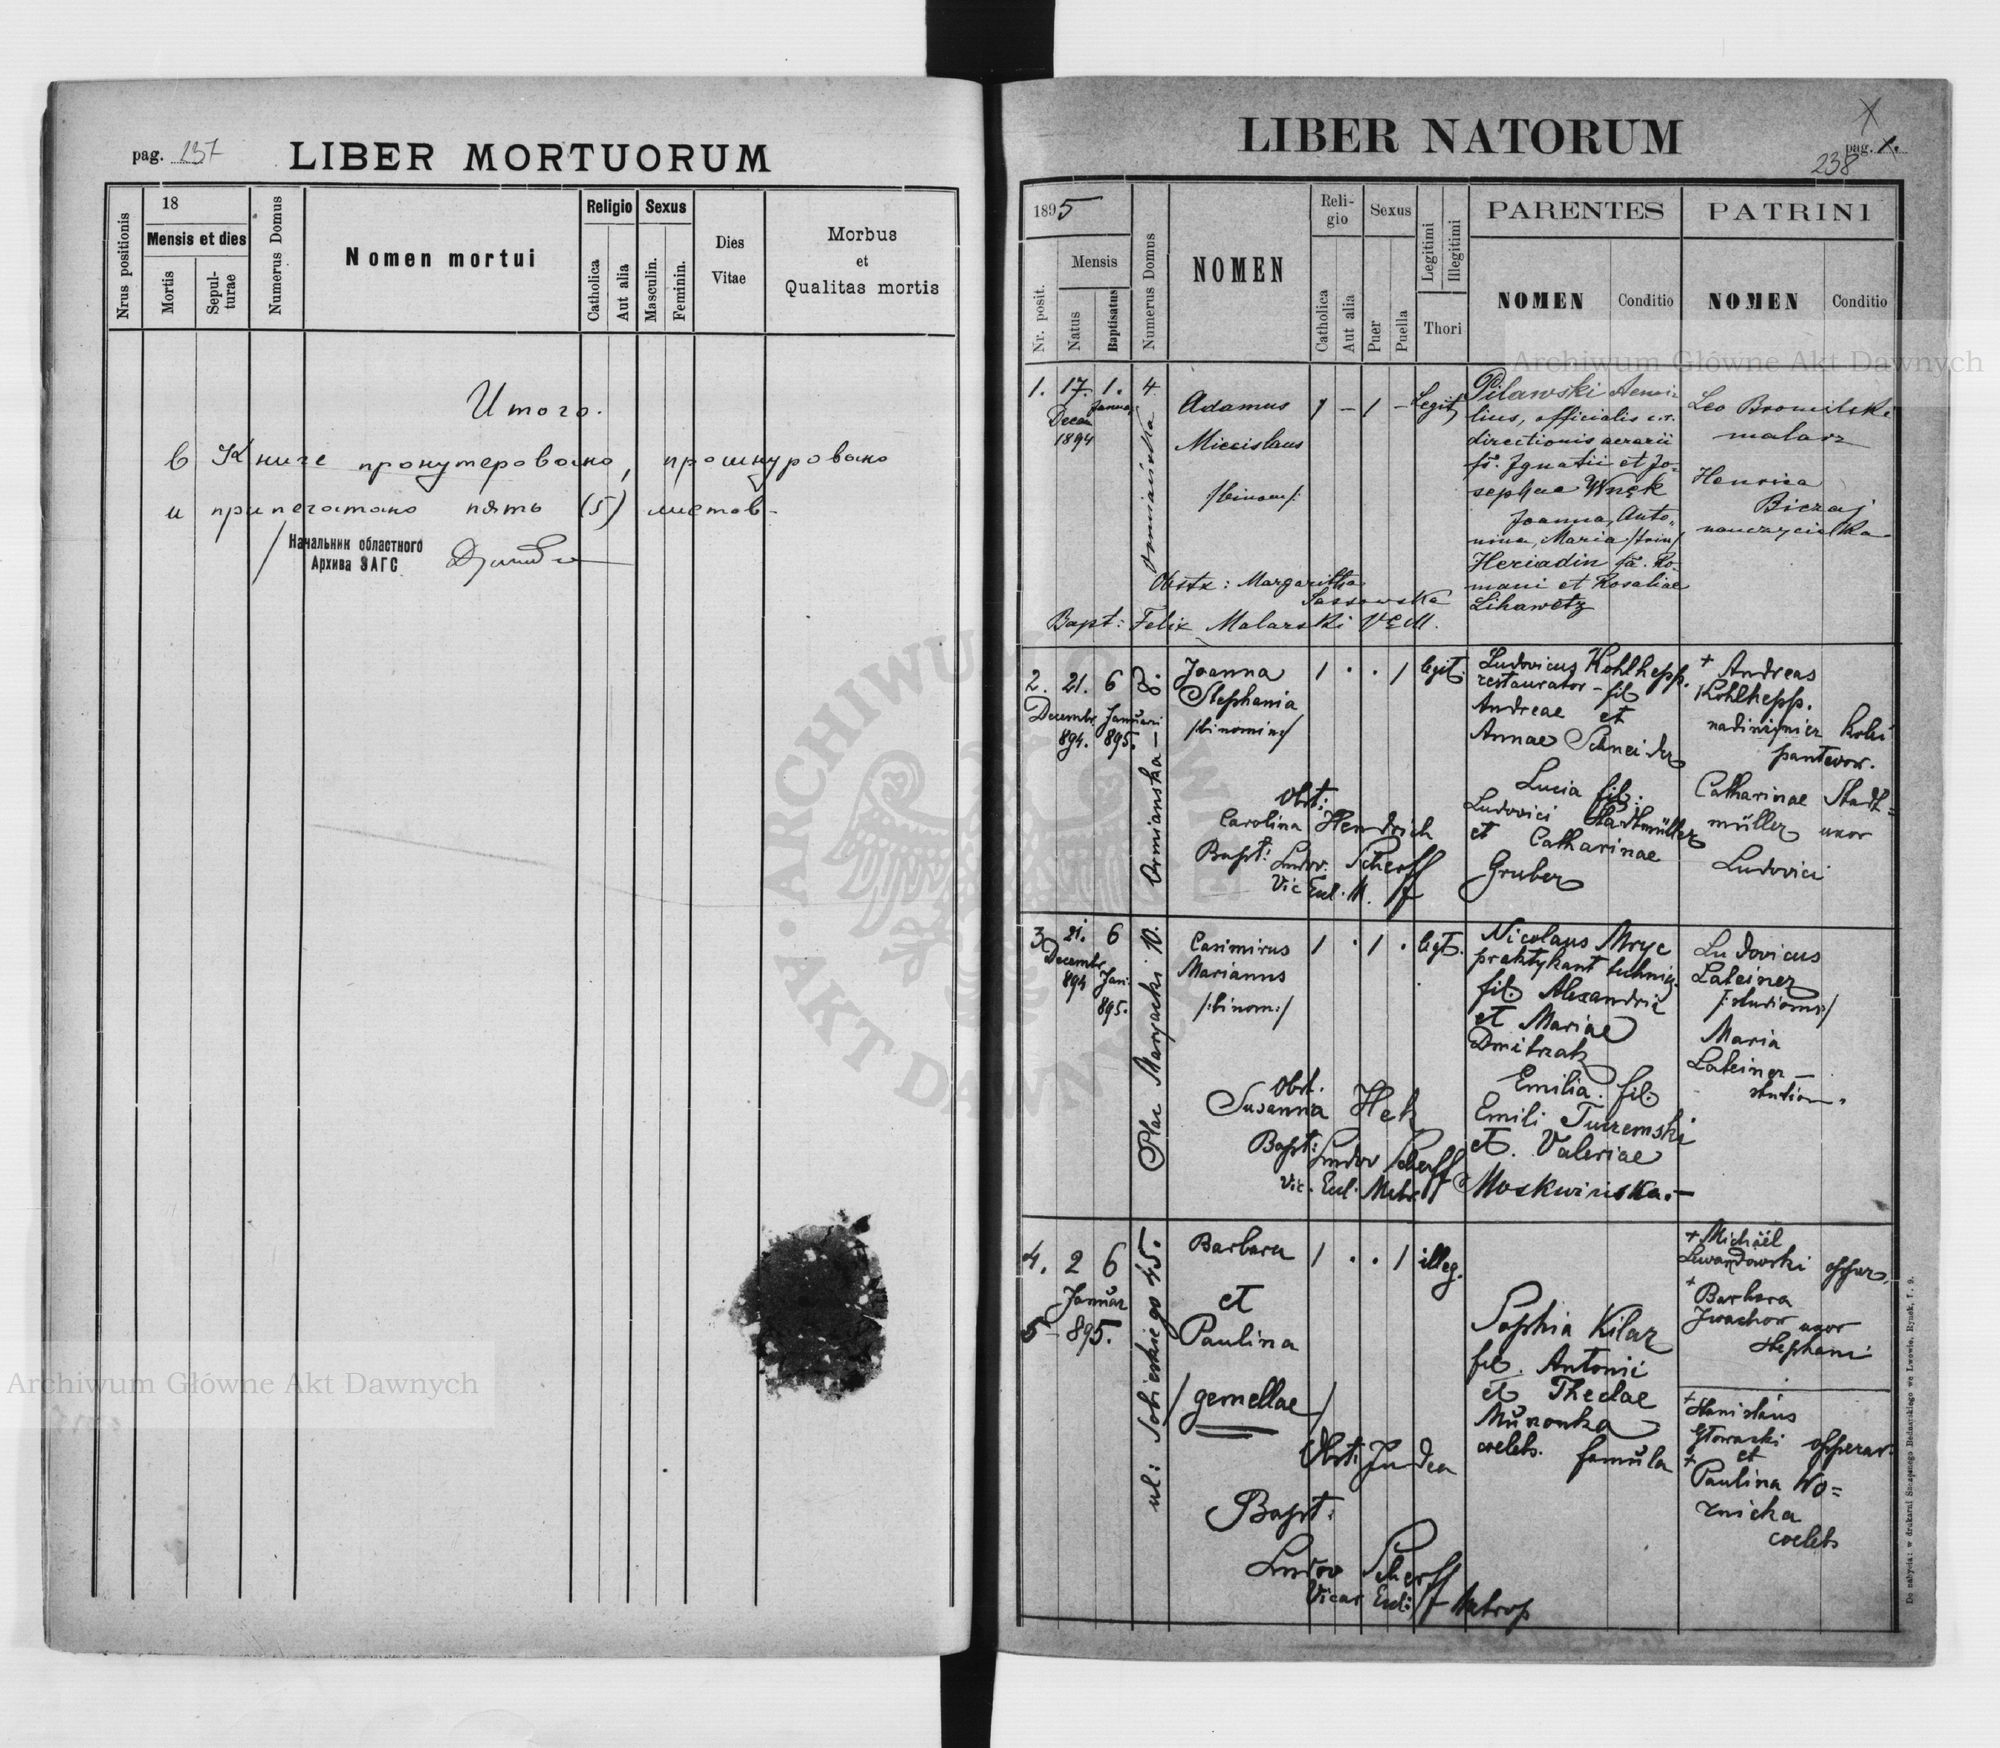 pag. 237
LIBER MORTUORUM
Nrus positionis
18
Mensis et dies
Mortis
Sepul-
turae
Numerus Domus
Nomen mortui
Religio
Catholica
Aut alia
Sexus
Masculin.
Feminin.
Dies
Vitae
Morbus
et
Qualitas mortis
Итого.
В Книге пронумеровано, прошнуровано
и припечатано пять (5) листов-
Начальник областного
Архива ЗАГС
LIBER NATORUM
pag. 1.
238
1895
Nr. posit.
Mensis
Natus
Baptisatus
Numerus Domus
NOMEN
Reli-
gio
Catholica
Aut alia
Sexus
Puer
Puella
Legitimi
Illegitimi
Thori
PARENTES
NOMEN
Conditio
PATRINI
NOMEN
Conditio
1. 17. 1. 4
Januar
Decem
1894
Ormiańska
Adamus
Miecislaus
/binom/:
1 – 1 – Legit
Pilawski Aemi-
lius, officialis c.r.
directionis aerarii
fs. Ignatii et Jo-
sephae Wnęk
Joanna, Anto-
nina, Maria /trin/
Heriadin fa. Ro-
mani et Rosaliae
Lihawetz
Leo Bromilski
malarz
Henrica
Bieżaj
nauczycielka
Obstx: Margaritha
Sassowska
Bapt: Felix Malarski VEM.
2. 21. 6 8.
Decembr. Januarii
894. 895.
Ormianska –
Joanna
Stephania
/binomin/
1 . . 1 legit.
Ludovicus Kohlhepp.
restaurator – fil
Andreae et
Annae Schneider
Lucia fil:
Ludovici Stadtmüller
et Catharinae
Gruber
+ Andreas
Kohlhepp.
nadinżynier kolei
państwow.
Catharinae Stadt=
müller uxor
Ludovici
Obst:
Carolina Hendrich
Bapt: Ludov. Scherff
Vic Eccl. M.
3 21. 6
Decembr
894 Jan:
895.
Plac Maryacki 10.
Casimirus
Marianus
/:binom:/
1 . 1 . legt.
Nicolaus Mryc
praktykant technicz.
fil. Alexandri
et Mariae
Dmitrzak
Emilia. fil.
Emili Turzemski
et. Valeriae
Moskwiriska. –
Ludovicus
Lateiner
/:studiosus:/
Maria
Lateiner –
studiosa.
Obst.
Susanna Hek
Bapt: Ludov Scherff
Vic. Eccl. Metr.
4. 2 6
Januar
5 – 895.
ul: Sobieskiego 45.
Barbara
et
Paulina
/gemellae/
1 . . 1 illeg.
Sophia Kilar
fil. Antonii
et Theclae
Munonka
coelebs. famula
+ Michaël
Lewandowski opper.
+ Barbara
Jwachor uxor
Stephani
+ Stanislaus
Głowacki opperar.
et
+ Paulina Wo=
znicka
coelebs
Obst: Judea
Bapt:
Ludov Scherff
Vicar Eccl: Metrop
Do nabycia: w drukarni Szczęsnego Bednarskiego we Lwowie, Rynek, l. 9.
Archiwum Główne Akt Dawnych
Archiwum Główne Akt Dawnych
ARCHIWUM GŁÓWNE
AKT DAWNYCH